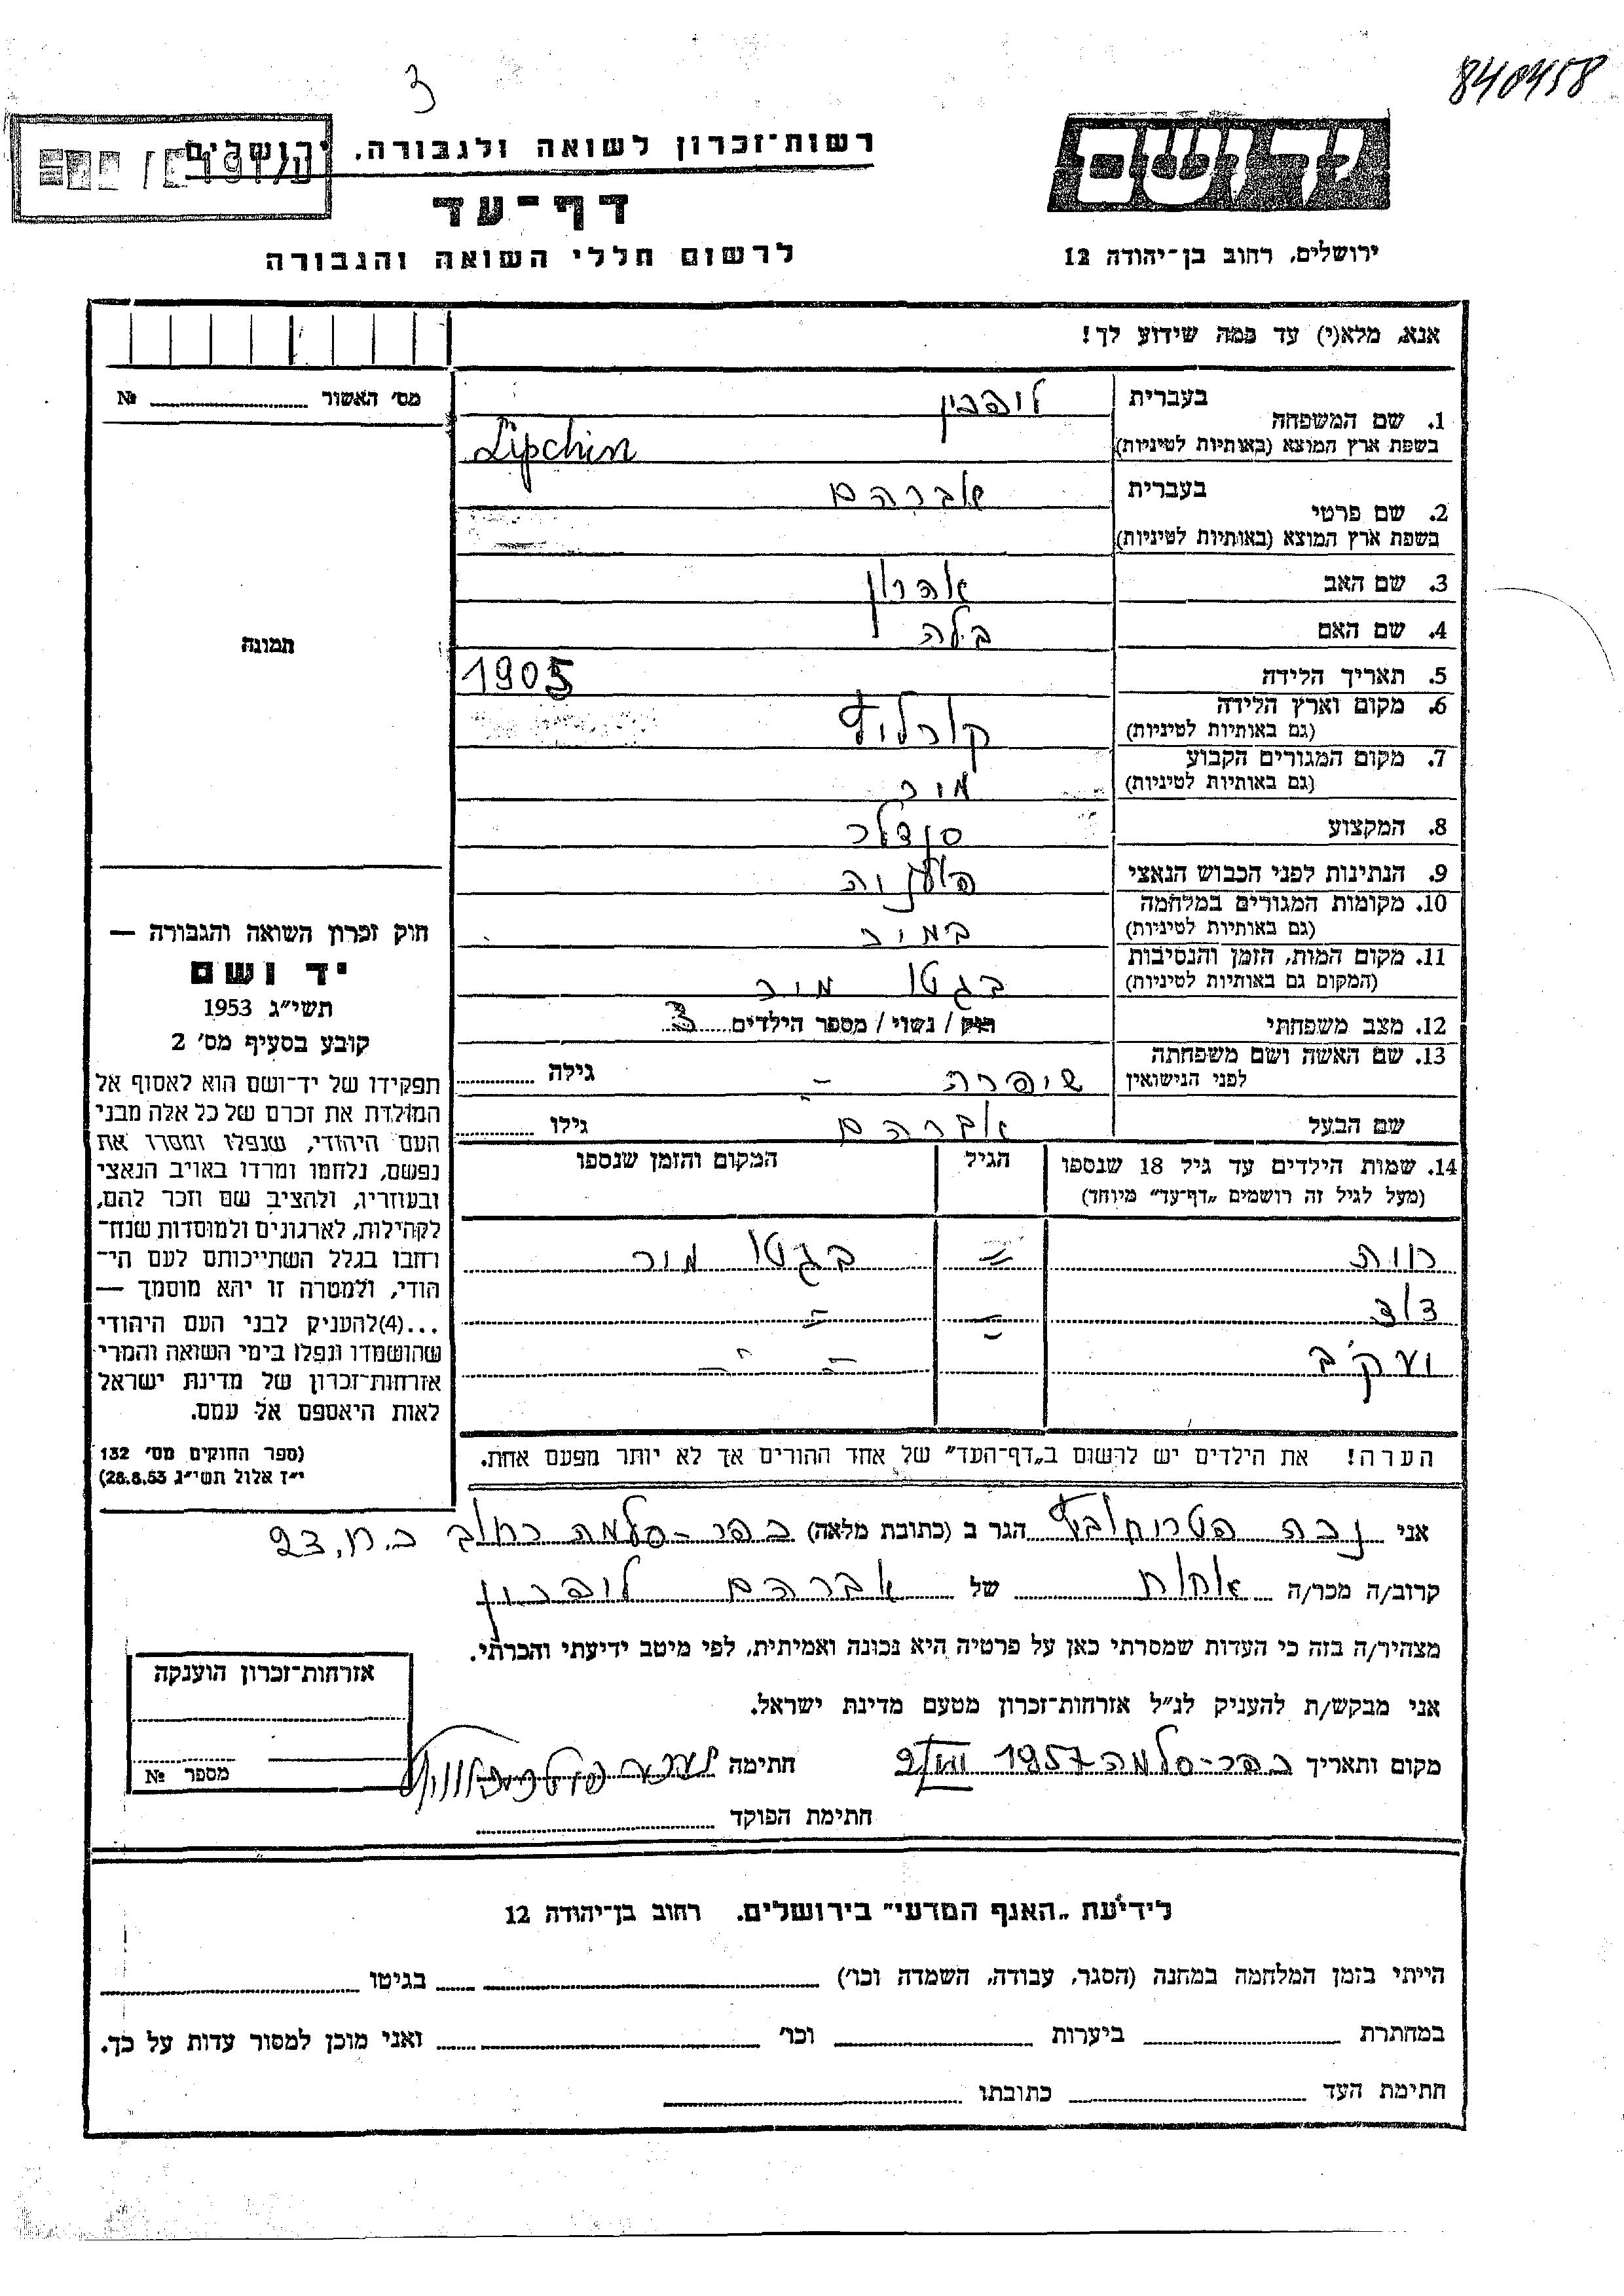 840458
3
יד ושם
רשות־זכרון לשואה ולגבורה, ירושלים
דף־עד
ירושלים, רחוב בן־יהודה 12
לרשום חללי השואה והגבורה
אנא, מלא(י) עד כמה שידוע לך!
מס' האשור №
1. שם המשפחה
בעברית
בשפת ארץ המוצא (באותיות לטיניות) Lipchin
2. שם פרטי
בעברית אברהם
בשפת ארץ המוצא (באותיות לטיניות)
3. שם האב אהרון
4. שם האם בילה
5. תאריך הלידה 1905
6. מקום וארץ הלידה
(גם באותיות לטיניות)
7. מקום המגורים הקבוע
(גם באותיות לטיניות) מיר
8. המקצוע סנדלר
9. הנתינות לפני הכבוש הנאצי
10. מקומות המגורים במלחמה
(גם באותיות לטיניות) במיר
11. מקום המות, הזמן והנסיבות
(המקום גם באותיות לטיניות) בגטו מיר
12. מצב משפחתי רווק / נשוי / מספר הילדים 3
13. שם האשה ושם משפחתה
לפני הנישואין שיפרה – גילה
שם הבעל אברהם גילו
תמונה
חוק זכרון השואה והגבורה —
יד ושם
תשי״ג 1953
קובע בסעיף מס' 2
תפקידו של יד־ושם הוא לאסוף אל
המולדת את זכרם של כל אלה מבני
העם היהודי, שנפלו ומסרו את
נפשם, נלחמו ומרדו באויב הנאצי
ובעוזריו, ולהציב שם וזכר להם,
לקהילות, לארגונים ולמוסדות שנח־
רחבו בגלל השתייכותם לעם הי־
הודי, ולמטרה זו יהא מוסמך —
...(4)להעניק לבני העם היהודי
שהושמדו ונפלו בימי השואה והמרי
אזרחות־זכרון של מדינת ישראל
לאות היאספם אל עמם.
(ספר החוקים מס' 132
י״ז אלול תשי״ג 28.8.53)
14. שמות הילדים עד גיל 18 שנספו
(מעל לגיל זה רושמים „דף־עד״ מיוחד)
הגיל
המקום והזמן שנספו
רות = בגטו מיר
דוד = =
יעקב
הערה! את הילדים יש לרשום ב„דף־העד״ של אחד ההורים אך לא יותר מפעם אחת.
אני הגר ב (כתובת מלאה) כפר-סלמה רחוב כ.ח. 23
קרוב/ה מכר/ה אחות של אברהם
מצהיר/ה בזה כי העדות שמסרתי כאן על פרטיה היא נכונה ואמיתית, לפי מיטב ידיעתי והכרתי.
אני מבקש/ת להעניק לנ״ל אזרחות־זכרון מטעם מדינת ישראל.
מקום ותאריך כפר-סלמה 1957 חתימה
חתימת הפוקד
אזרחות־זכרון הוענקה
מספר №
לידיעת „האגף המדעי״ בירושלים. רחוב בן־יהודה 12
הייתי בזמן המלחמה במחנה (הסגר, עבודה, השמדה וכו') בגיטו
במחתרת ביערות וכו' ואני מוכן למסור עדות על כך.
חתימת העד כתובתו